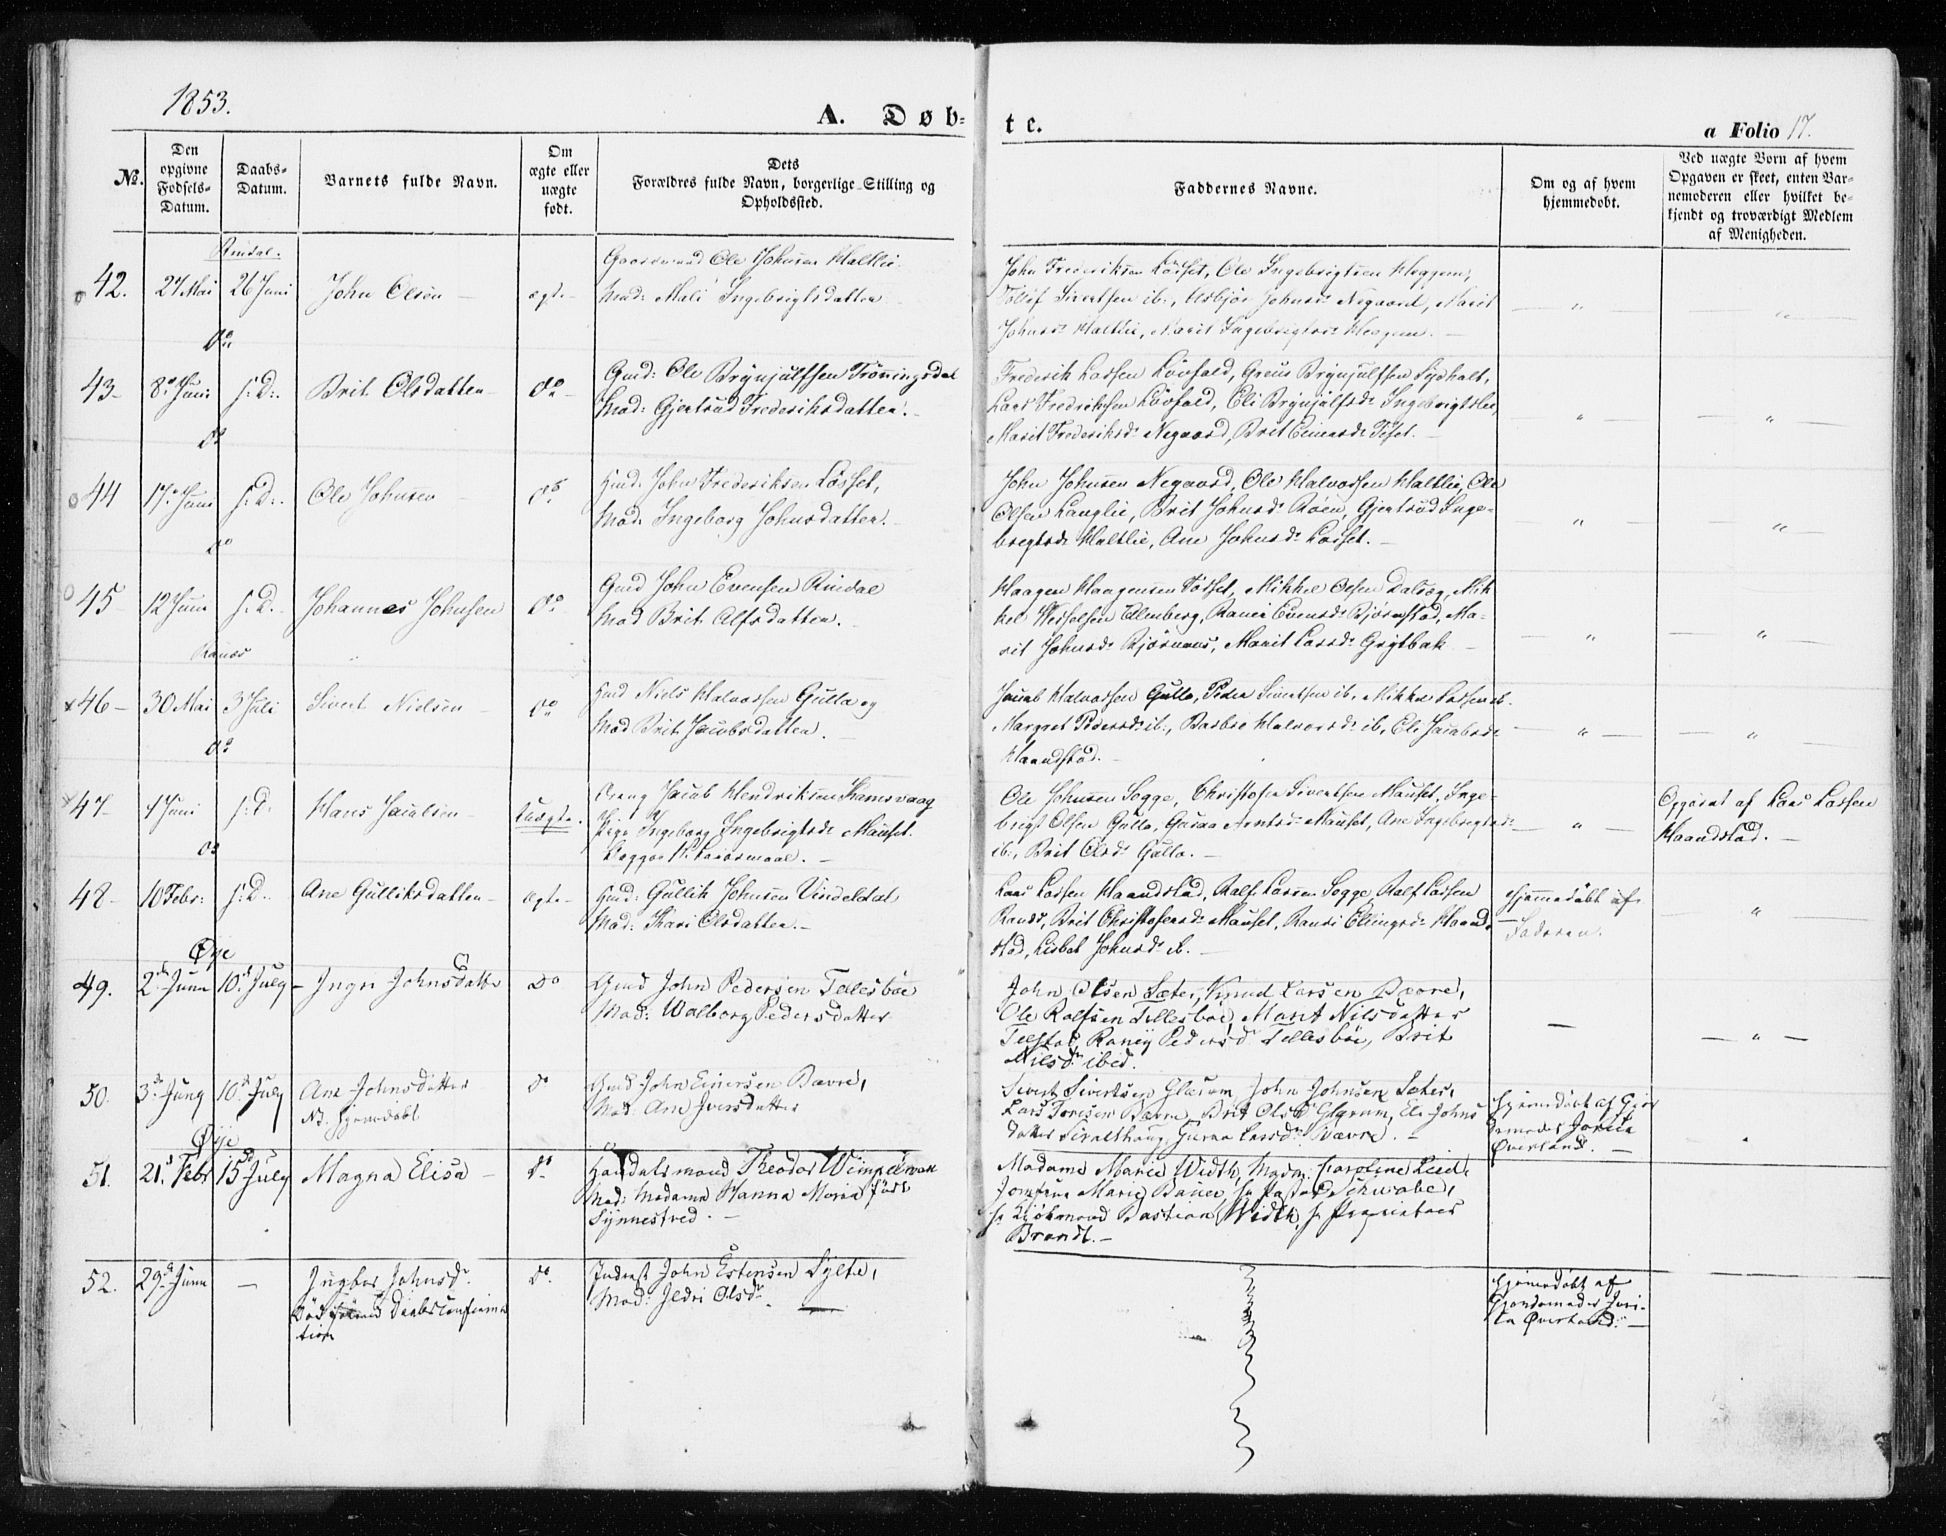 1853.
A. Døb-
te.
a Folio 17.
No.
Den opgivne Fødsels-Datum.
Daabs-Datum.
Barnets fulde Navn.
Om ægte eller uægte født.
Dets Forældres fulde Navn, borgerlige Stilling og Opholdssted.
Faddernes Navne.
Om og af hvem hjemmedøbt.
Ved uægte Born af hvem Opgaven er skeet, enten Barnemoderen eller hvilket bekjendt og troværdigt Medlem af Menigheden.
Rindal.
42. 27 Mai 26 Juni John Olsen ægte
Gaardmand Ole Johnsen Haltlie
Mod: Mali Ingebrigtsdatter
John Frederiksen Løsset, Ole Ingebrigtsen Heggem,
Tollef Sivertsen ib., Johnsd. Negaard, Marit
Johnsd. Haltlie, Marit Ingebrigtsd. Heggem.
Do
43 8de Juni s: D: Brit Olsdatter Do
Gmd: Ole Brynjulfsen Trønningsdal
Mod: Gjertrud Frederiksdatter.
Frederik Larsen Løvfald, Brynjulfsen
Lars Fredriksen Løvfald, Eli Brynjulfsd. Ingebrigtslie,
Marit Frederiksd. Negaard, Brit Einarsd.
Do
44 17de Juni s: D: Ole Johnsen Do
Gmd: John Frederiksen Løsset,
Mod: Ingeborg Johnsdatter.
John Johnsen Negaard, Ole Halvorsen Haltlie, Ole
Olsen Langlie, Brit Johnsd. Røen, Gjertrud Inge-
brigtsd. Haltlie, Ane Johnsd. Løsset.
Do
45 12 Juni s: D. Johannes Johnsen Do
Gmd John Evensen Rindal
Mod Brit Alfsdatter.
Haagen Haagensen Mikkel Olsen Mik-
kel Ellenberg, Evensd. Bjørnstad, Ma-
rit Johnsd. Bjørnaas, Marit Larsd. Grytbak
Ranæs
46 30 Mai 3 Juli Sivert Nielsen Do
Gmd Niels Halvorsen Gulla og
Mod Brit Jacobsdatter.
Jacob Halvorsen Gulla, Peder Sivertsen ib. Mikkel Larsen ib.
Margret Pedersd. ib., Halvorsd. ib, Eli Jacobsd.
Haandstad.
Do
47 1 Juni s: D. Hans Jacobsen Uægte.
Dreng Jacob Hendriksen
Pige Ingeborg Ingebrigtsd. Mauset.
Begges 1ste Leiermaal.
Ole Johnsen Sogge, Christofer Sivertsen Mauset, Inge-
brigt Olsen Gulla, Arntsd. Mauset, Ane Ingebrigtsd.
ib., Brit Olsd. Gulla.
Opgivet af Lars Larsen
Haandstad.
Do
48 10 Febr: s: D. Ane Gulliksdatter ægte
Gmd: Gullik Johnsen Vindeldal
Mod: Kari Olsdatter.
Lars Larsen Haandstad, Rolf Larsen Sogge, Rolf Larsen
Brit Christofersd. Mauset, Ellingsd. Haand-
stad, Lisbet Johnsd. ib.
Hjemmedøbt af
Faderen.
Øye
49. 2 Juni 10 July Ingri Johnsdatter Do
Gmd John Pedersen Tellesbøe
Mod: Walborg Pedersdatter
John Olsen Sæter, Knud Larsen Bævre,
Ole Rolfsen Tellesbøe, Marit Nilsdatter
Pedersd. Tellesbøe, Brit
Nilsd. ibed.
50. 3 Juny 10 July Ane Johnsdatter Do
NB. hjemdøbt
Gmd John Einersen Bævre,
Mod: Ane Iversdatter
Sivert Sivertsen Glærum, John Johnsen Sæter,
Lars Toresen Bævre, Brit Olsd. Glærum, Johns
datter Gurua Larsd. Bævre.
Hjemmedøbt af Gjor-
demoder
Øverland.
Øye
51. 21. Febr 15 July Magna Elisa Do
Handelsmand Theodor
Mod: Madame Hanna Maria født
Synnestved.
Madame Marie Width, Madm. Caroline
Jomfrue Marie Hr Pastor Schwabe,
Hr Kjøbmand Bastian Width, Hr Proprietær
Brandt.
52. 29 Juni Johnsd. Do
Død Daabsconfirma-
tion
Inderst John Estensen Sylte,
Mod: Olsd.
Hjemmedøbt af
Gjordemoder
Øverland.